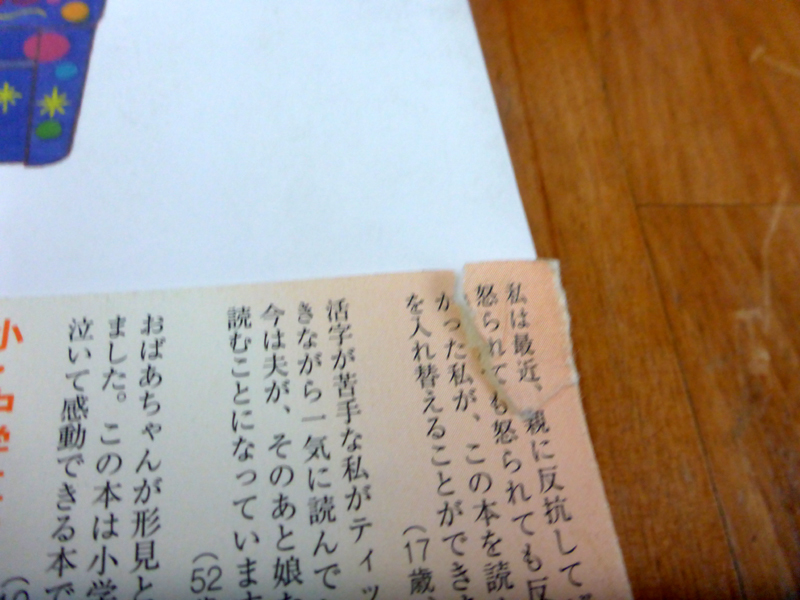 私は最近、親に反抗して
怒られても怒られても反
かった私が、この本を読
を入れ替えることができ
(17歳
活字が苦手な私がティッ
きながら一気に読んで
今は夫が、そのあと娘
読むことになっています
(52
おばあちゃんが形見と
ました。この本は小学
泣いて感動できる本で